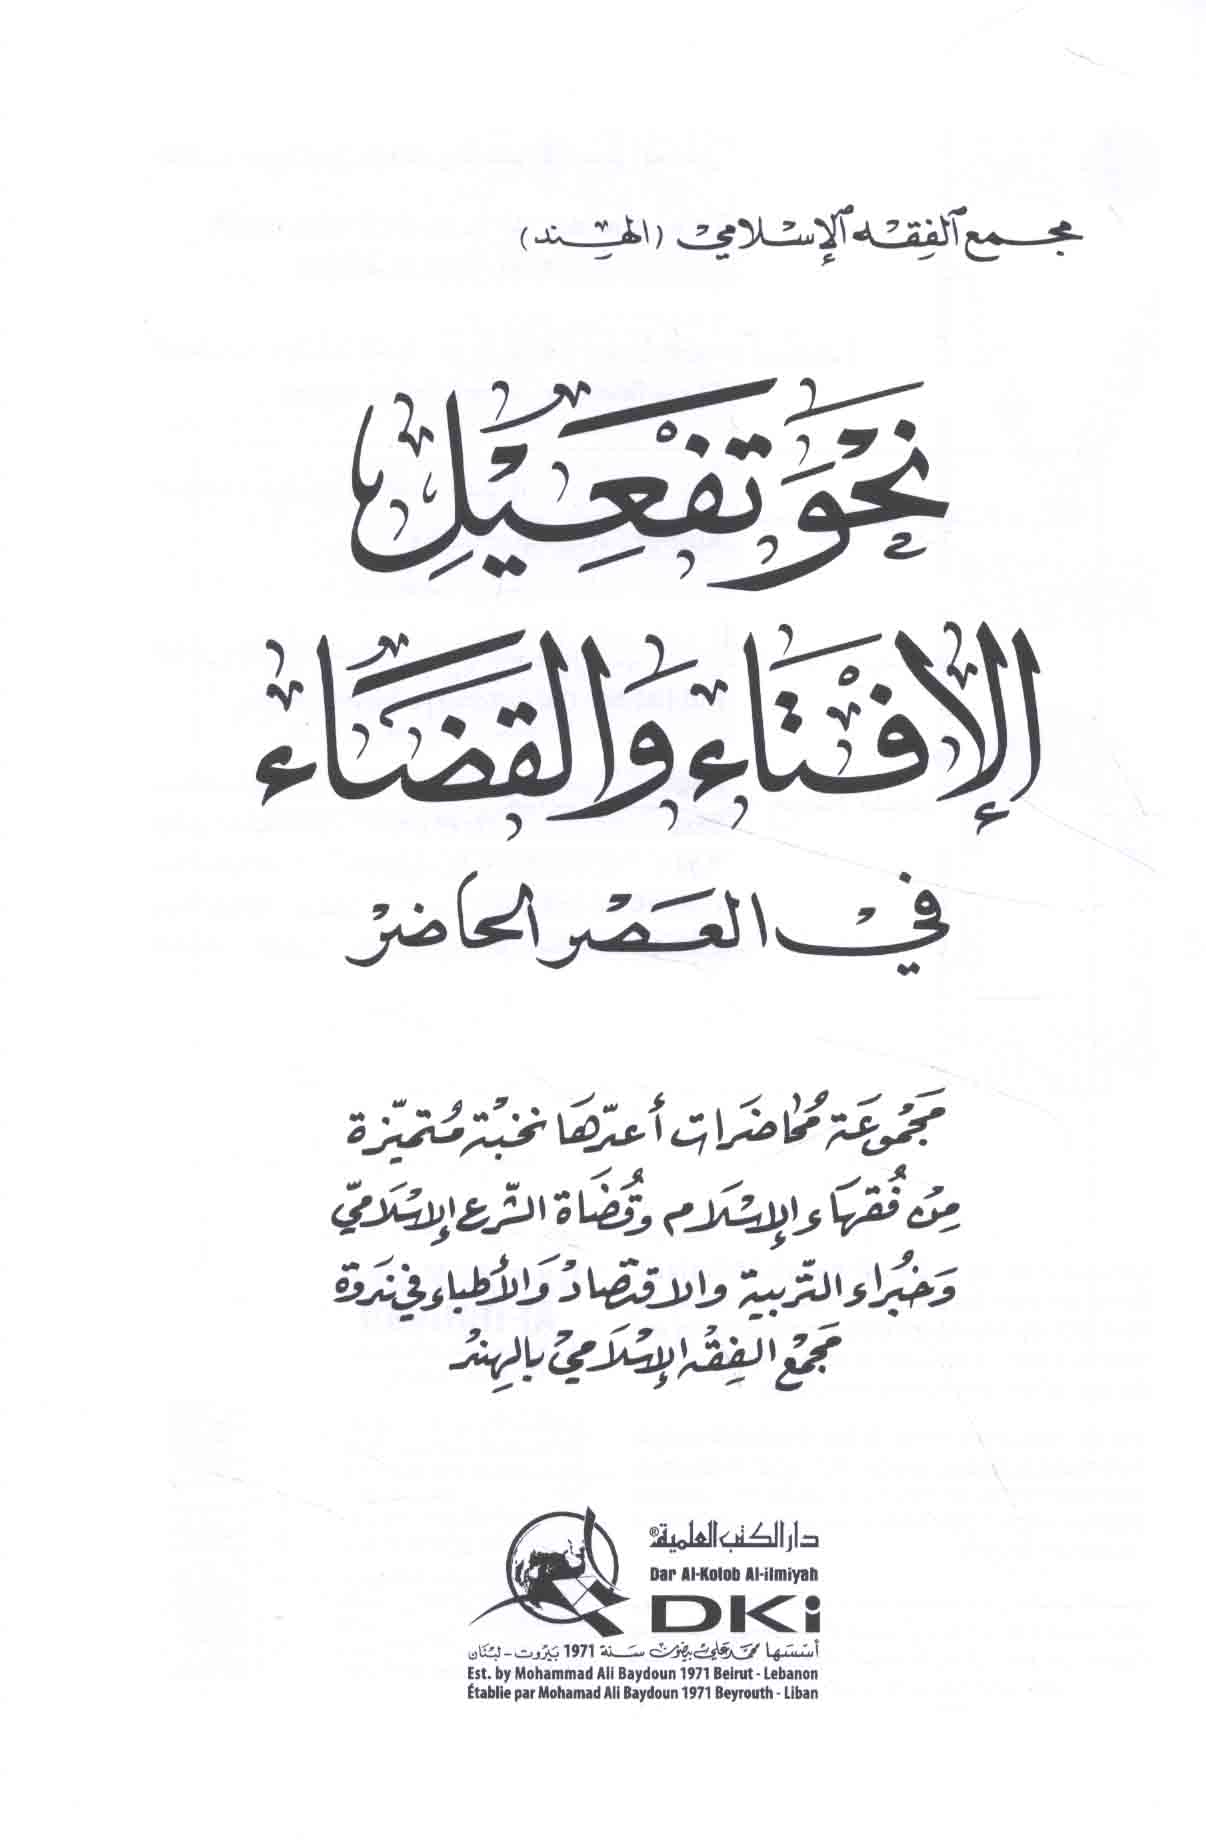 مجمع الفقه الإسلامي (الهند)
نحو تفعيل
الإفتاء والقضاء
في العصر الحاضر
مجموعة محاضرات أعدّها نخبة متميّزة
من فقهاء الإسلام وقضاة الشّرع الإسلاميّ
وخبراء التّربية والاقتصاد والأطباء في ندوة
مجمع الفقه الإسلامي بالهند
دار الكتب العلمية®
Dar Al-Kotob Al-ilmiyah
DKi
أسسها محمد علي بيضون سنة 1971 بيروت - لبنان
Est. by Mohammad Ali Baydoun 1971 Beirut - Lebanon
Établie par Mohamad Ali Baydoun 1971 Beyrouth - Liban